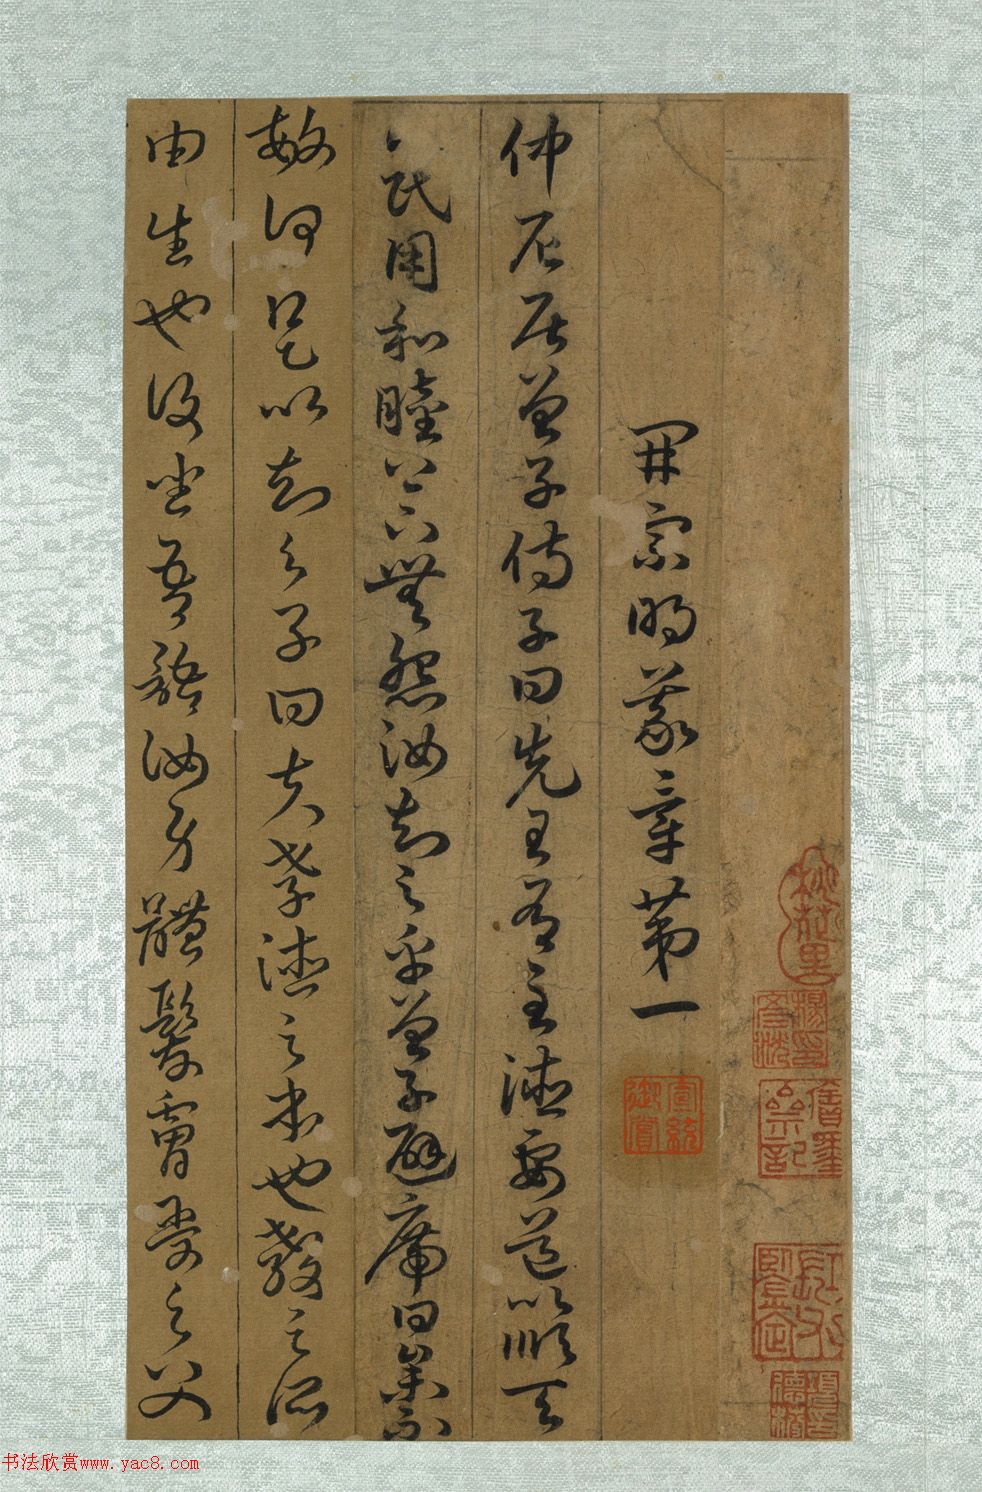 開宗明義章第一
仲尼居曾子侍子曰先王有至德要道以順天
下民用和睦上下無怨汝知之乎曾子避席曰參不
敏何足以知之子曰夫孝德之本也教之所
由生也復坐吾語汝身體髮膚受之父
宣統御賞
书法欣赏www.yac8.com